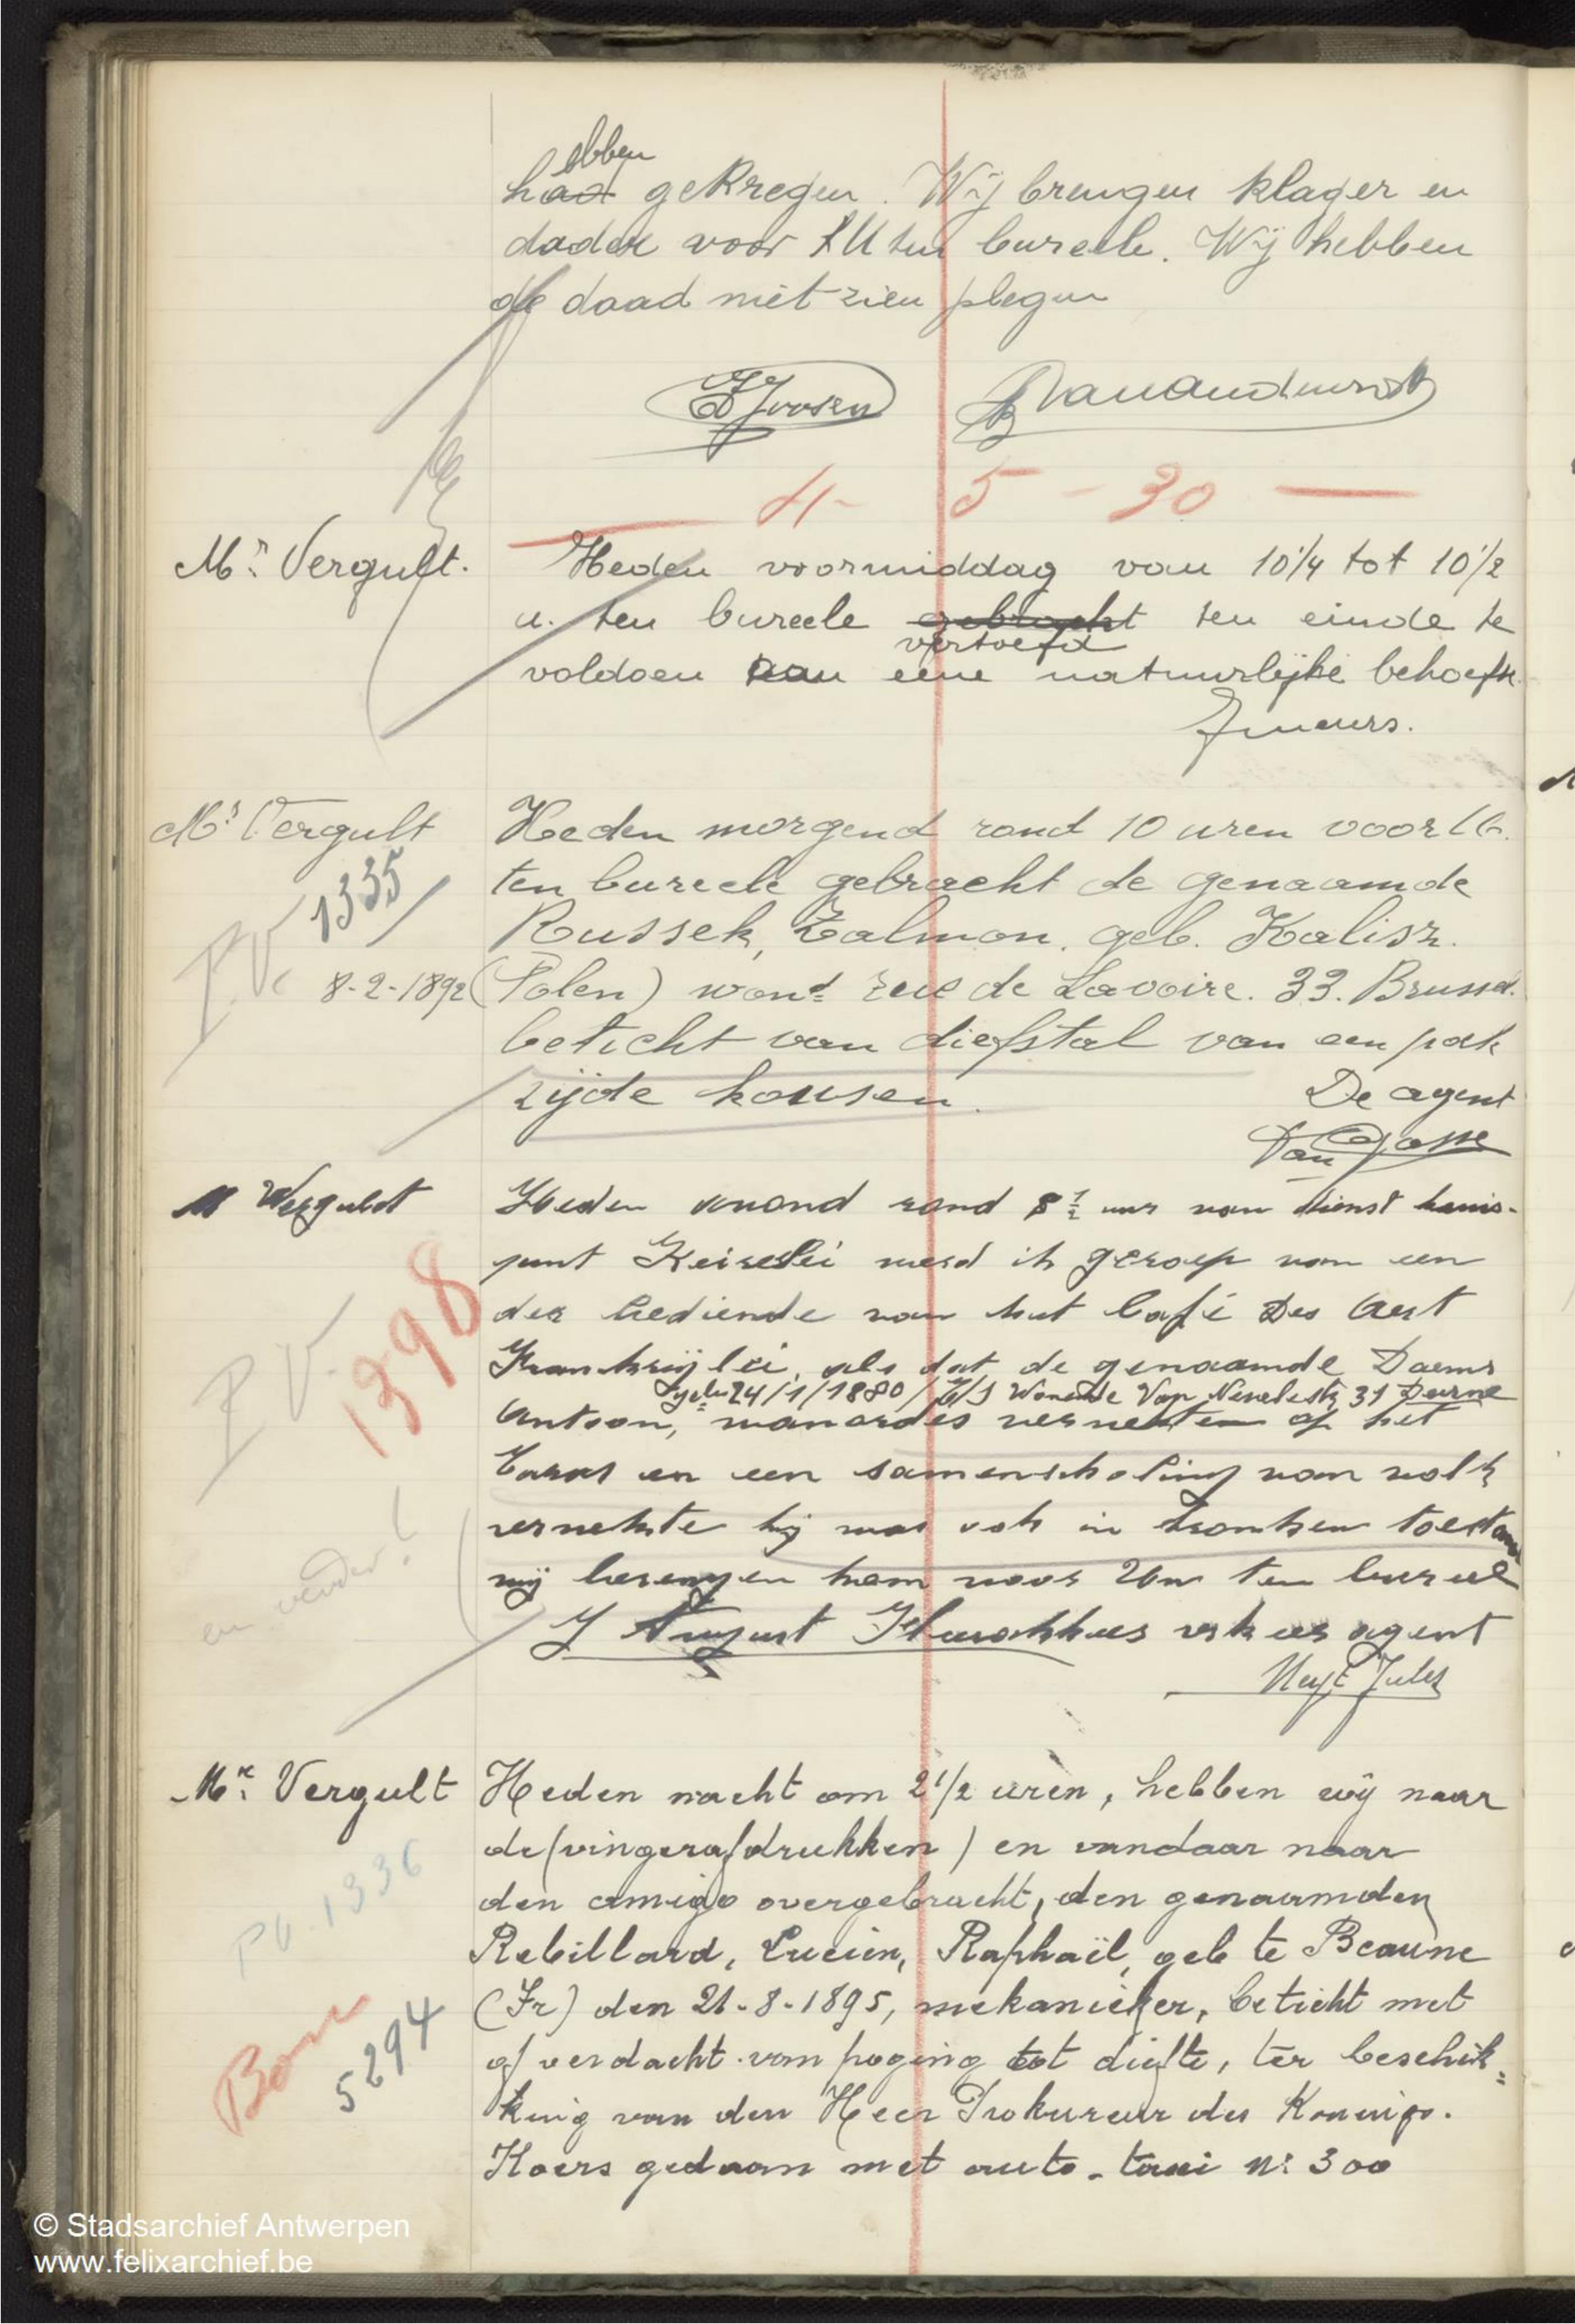 hebben
had gekregen. Wij brengen klager en
dader voor UU ten bureele. Wij hebben
de daad niet zien plegen
Joosen
4 - 5 - 30 -
Mr. Vergult.
Heden voormiddag van 10 1/4 tot 10 1/2
u. ten bureele gebracht ten einde te
vertoefd
voldoen aan eene natuurlijke behoefte.
Mr Vergult
Heden morgend rond 10 uren voor U.
1335
ten bureele gebracht de genaamde
P.V.
Russek, Zalmon, geb. Kalisz.
8-2-1892 (Polen) wond rue de Lavoire. 33. Brussel.
beticht van diefstal van een pak
zijde kousen.
De agent
Van Gasse
M Vergult
Heden avond rond 8 1/2 uur van dienst kruis-
punt Keiserlei werd ik geroep van een
der bediende van het Café Des Arts
P.V. 1398
Frankrijklei, als dat de genaamde Daems
geb. 24/1/1880 / Wonende Van 31 Deurne
Antoon, wanordes verwekten op het
Terras en een samenscholing van volk
verwekte hij was ook in dronken toestand
en verder!
wij brengen hem voor Uw ten bureel
August agent
Jules
Mr. Vergult
Heden nacht om 2 1/2 uren, hebben wij naar
de (vingerafdrukken) en vandaar naar
PV. 1336
den amigo overgebracht, den genaamden
Rebillard, Lucien, Raphaël, geb te Beaune
(Fr) den 21-8-1895, mekanieker, beticht met
Bon 5294
of verdacht van poging tot diefte, ter beschik=
king van den Heer Prokureur des Konings.
Koers gedaan met auto-taxi Nr 300
© Stadsarchief Antwerpen
www.felixarchief.be